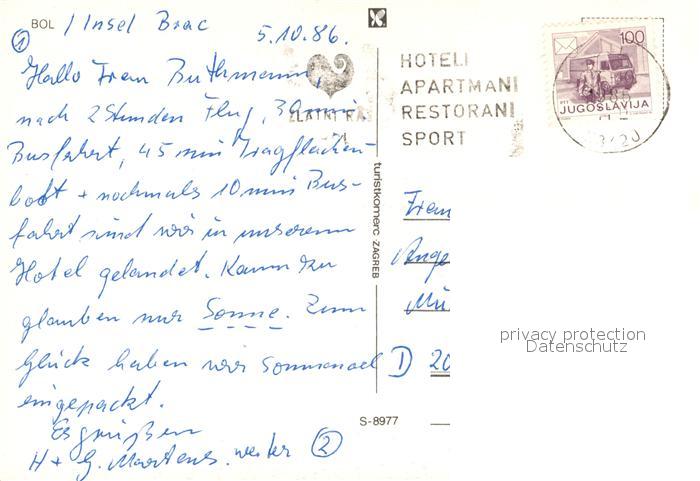 BOL / Insel Brac
① 5.10.86.
Hallo Frau Buthmann,
nach 2 Stunden Flug, 30 min.
Busfahrt, 45 min Tragflächen-
boot + nochmals 10 min Bus-
fahrt sind wir in unserem
Hotel gelandet. Kaum zu
glauben nur Sonne. Zum
Glück haben wir Sonnenoel
eingepackt.
Es grüßen
H + G. Martens. weiter ②
ZLATNI RAT
HOTELI
APARTMANI
RESTORANI
SPORT
100
PTT JUGOSLAVIJA
turistkomerc ZAGREB
S-8977
Frau
Ange
Mü
D 20
privacy protection
Datenschutz